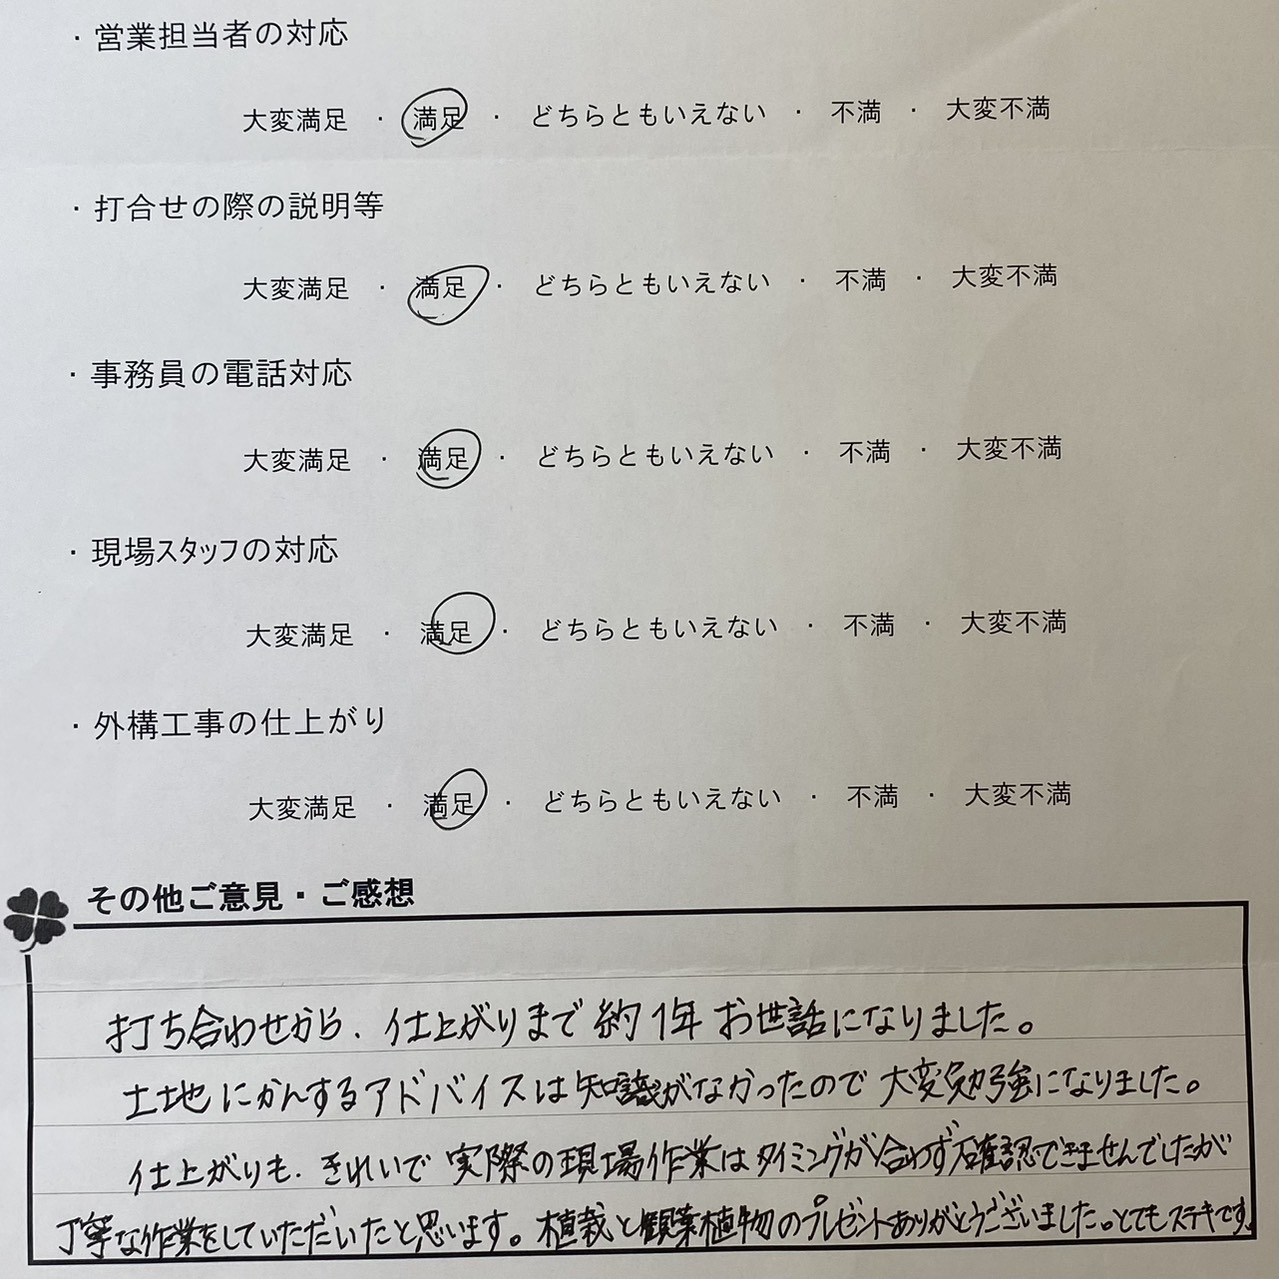 ・営業担当者の対応
大変満足 ・ 満足 ・ どちらともいえない ・ 不満 ・ 大変不満
・打合せの際の説明等
大変満足 ・ 満足 ・ どちらともいえない ・ 不満 ・ 大変不満
・事務員の電話対応
大変満足 ・ 満足 ・ どちらともいえない ・ 不満 ・ 大変不満
・現場スタッフの対応
大変満足 ・ 満足 ・ どちらともいえない ・ 不満 ・ 大変不満
・外構工事の仕上がり
大変満足 ・ 満足 ・ どちらともいえない ・ 不満 ・ 大変不満
その他ご意見・ご感想
打ち合わせから、仕上がりまで約1年お世話になりました。
土地にかんするアドバイスは知識がなかったので大変勉強になりました。
仕上がりも、きれいで実際の現場作業はタイミングが合わず確認できませんでしたが
丁寧な作業をしていただいたと思います。植栽と観葉植物のプレゼントありがとうございました。とてもステキです。